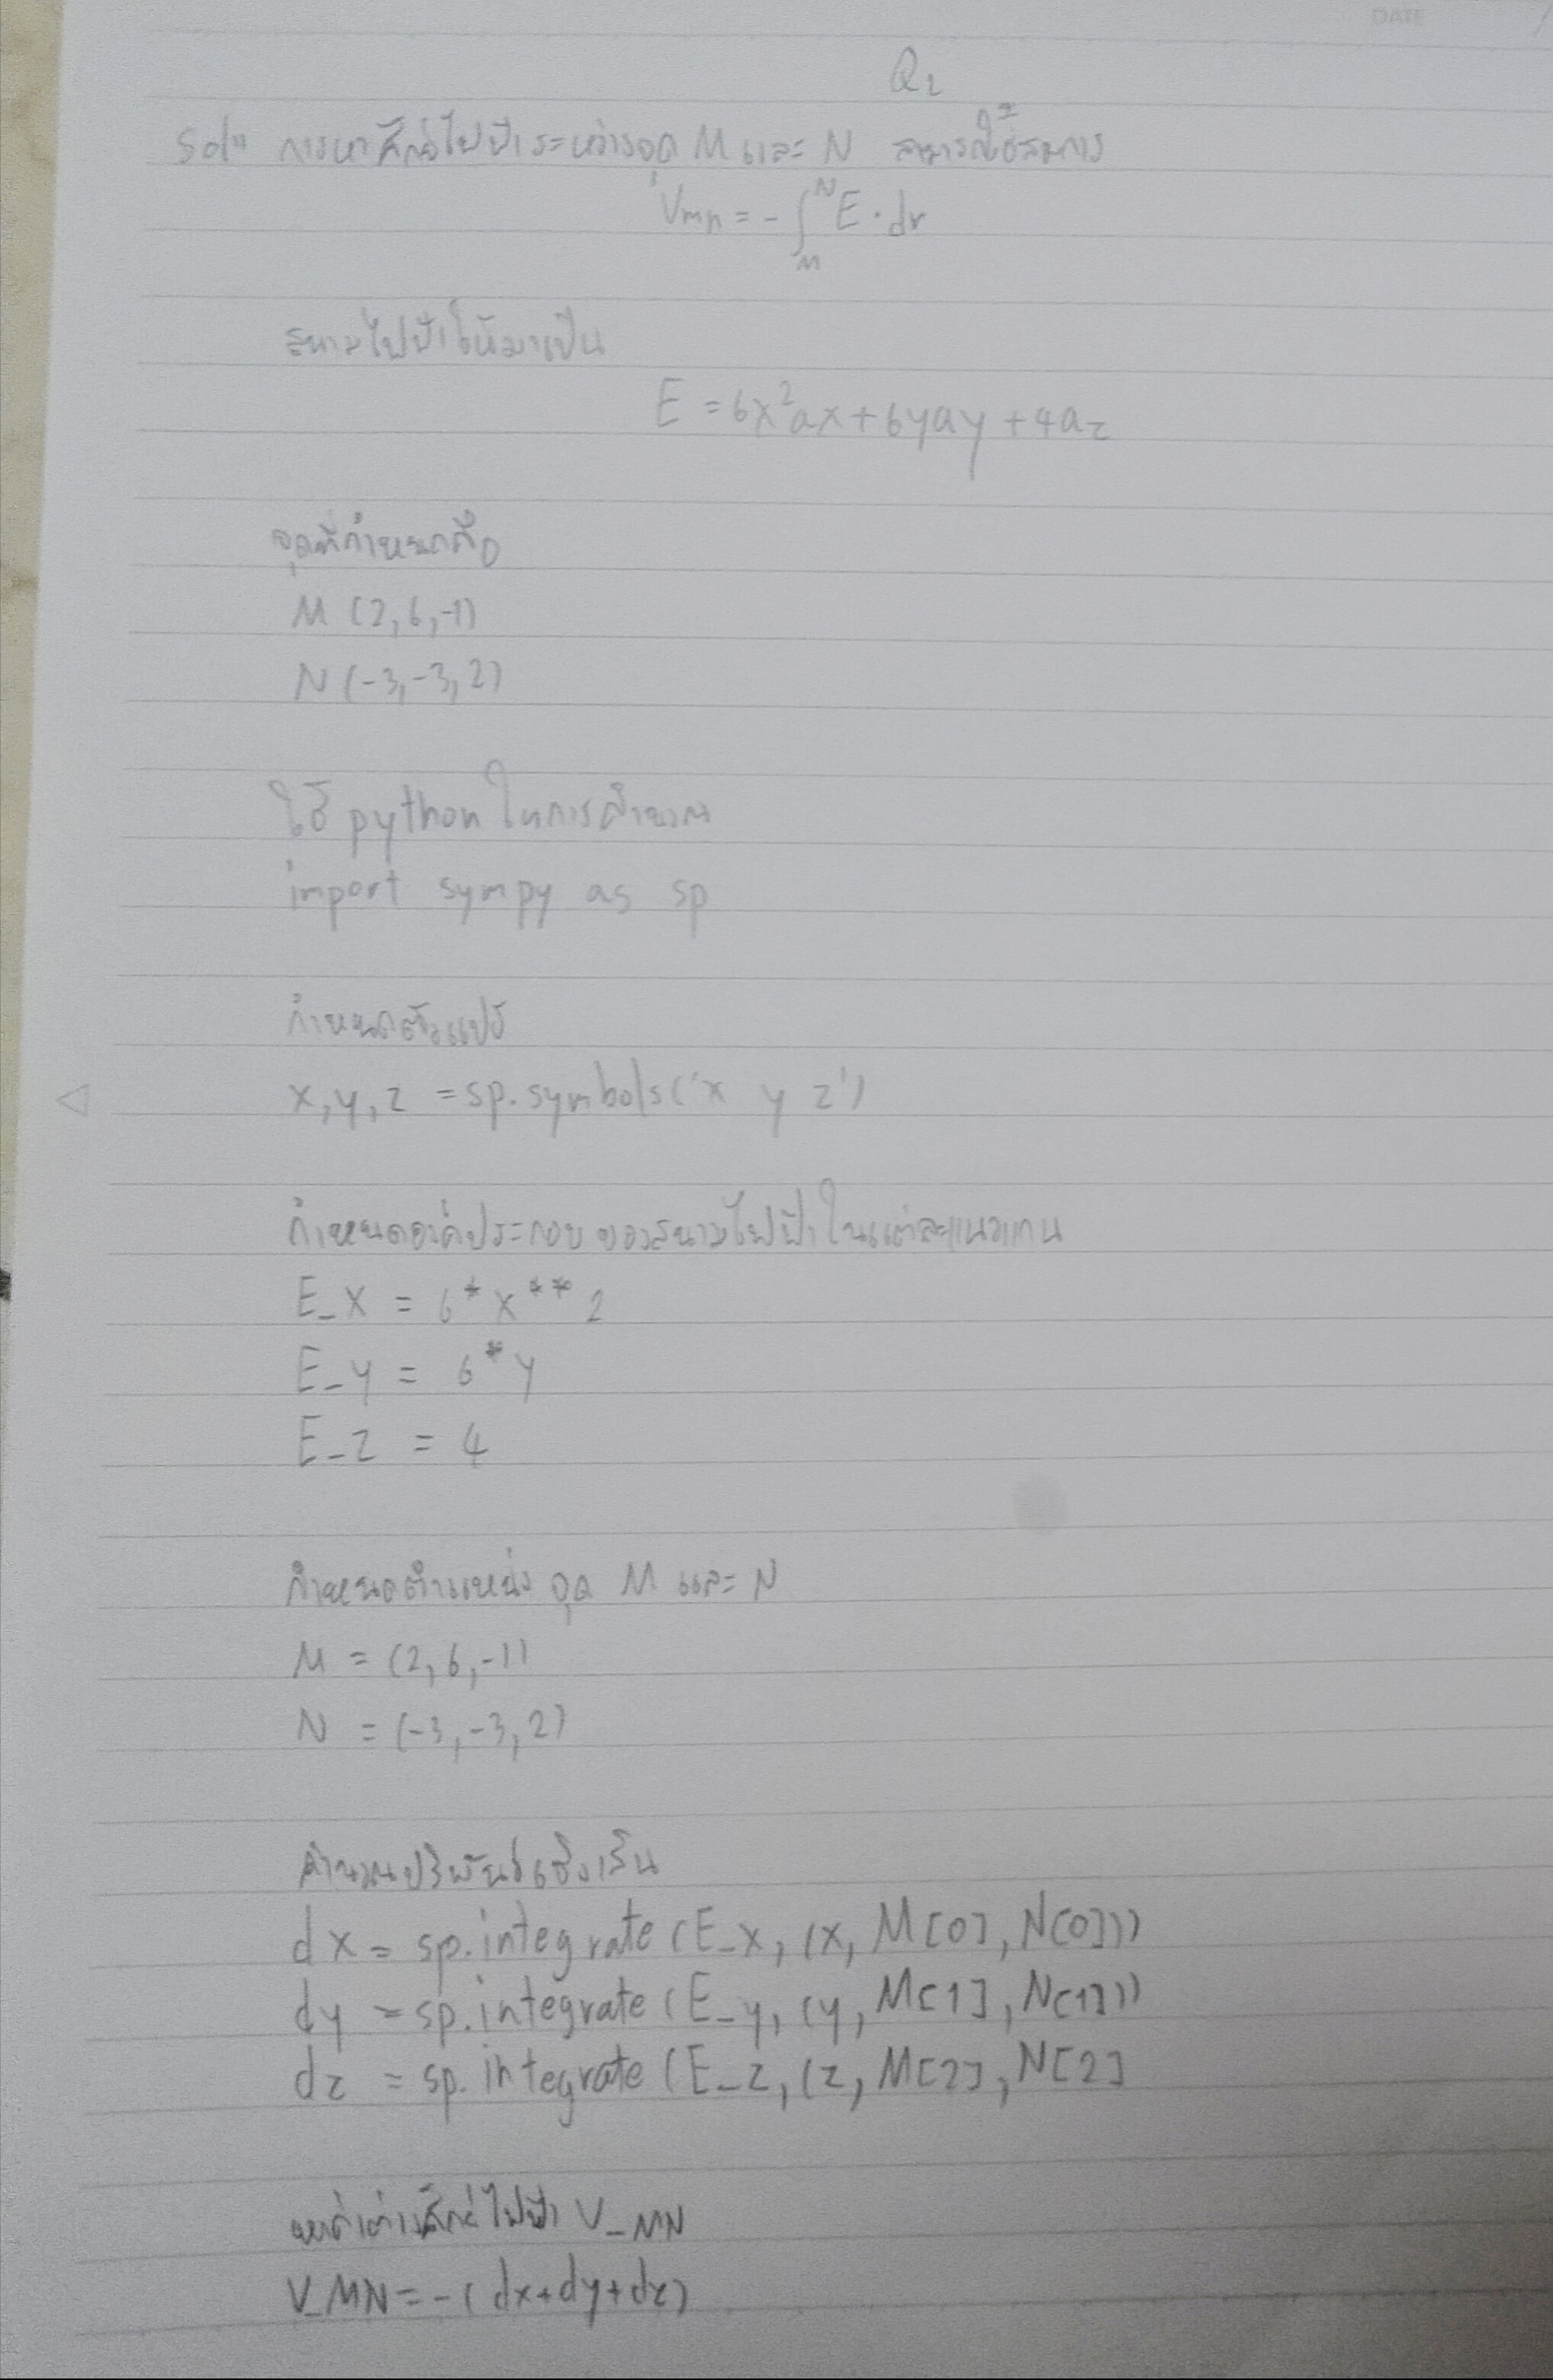 DATE
Q2
Solⁿ การหาศักย์ไฟฟ้าระหว่างจุด M และ N สามารถใช้สมการ
Vmn = - ∫_M^N E · dr
สนามไฟฟ้าให้มาเป็น
E = 6x²ax + 6yay + 4az
จุดที่กำหนดคือ
M (2, 6, -1)
N (-3, -3, 2)
ใช้ python ในการคำนวณ
import sympy as sp
กำหนดตัวแปร
x, y, z = sp.symbols('x y z')
กำหนดองค์ประกอบของสนามไฟฟ้าในแต่ละแนวแกน
E_x = 6*x**2
E_y = 6*y
E_z = 4
กำหนดตำแหน่งจุด M และ N
M = (2, 6, -1)
N = (-3, -3, 2)
คำนวณปริพันธ์เชิงเส้น
dx = sp.integrate(E_x, (x, M[0], N[0]))
dy = sp.integrate(E_y, (y, M[1], N[1]))
dz = sp.integrate(E_z, (z, M[2], N[2]
ไฟฟ้า V_MN
V_MN = -(dx+dy+dz)